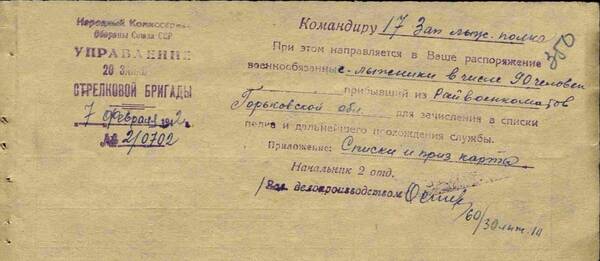 Народный Комиссариат
Обороны Союза ССР
УПРАВЛЕНИЕ
20 ЗАПАС
СТРЕЛКОВОЙ БРИГАДЫ
7 февраля 1942 г.
№ 2/0702
Командиру 17 Зап лыж. полка
350
При этом направляется в Ваше распоряжение
военнообязанные-лыжники в числе 90 человек
прибывший из Райвоенкоматов
Горьковской обл. для зачисления в списки
полка и дальнейшего прохождения службы.
Приложение: Списки и приз карты
Начальник 2 отд.
делопроизводством